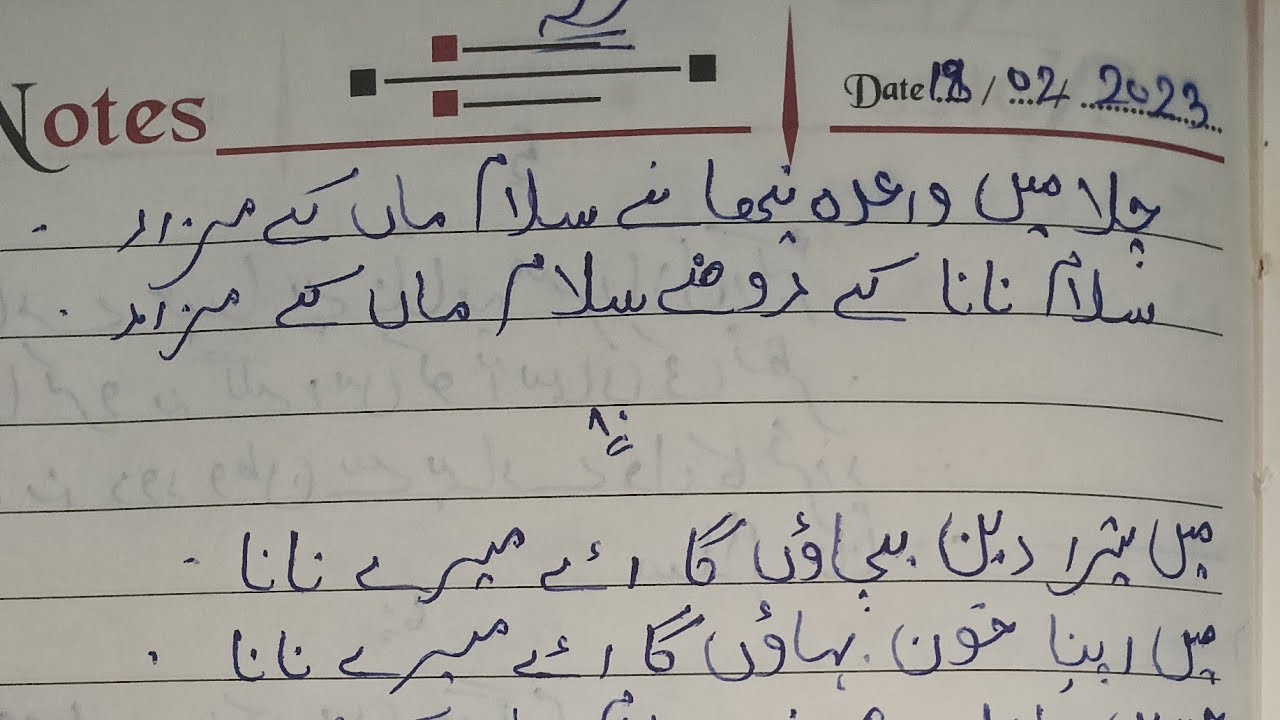 Notes
Date 18/02/2023
چلا میں وعدہ نبھانے سلام ماں کے مزار
سلام نانا کے روضے سلام ماں کے مزار
میں تیرا دین بچاؤں گا اے میرے نانا
میں اپنا خون بہاؤں گا اے میرے نانا